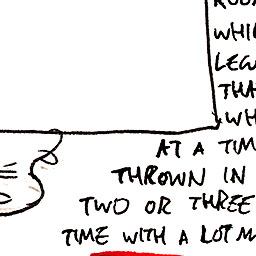 WHI
LEG
THA
WH
AT A TIM
THROWN IN
TWO OR THREE
TIME WITH A LOT M